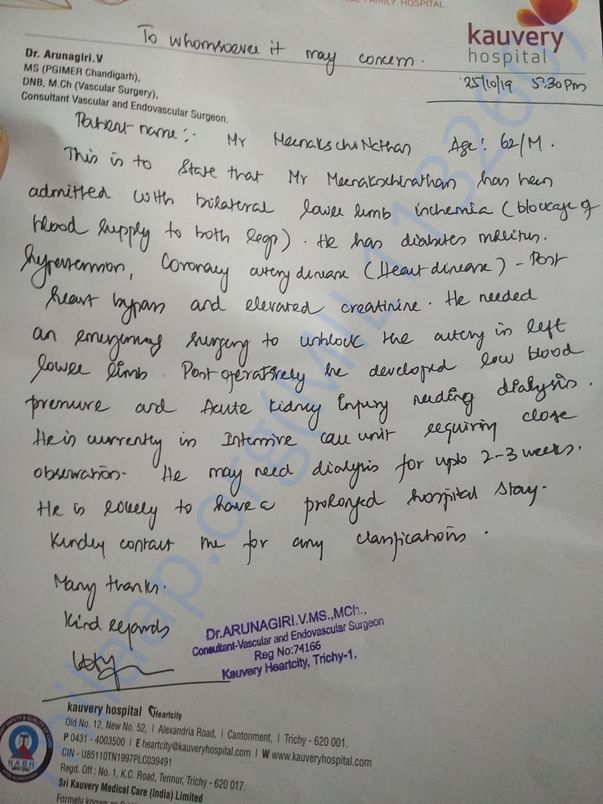 FAMILY HOSPITAL
kauvery
hospital
To whomsoever it may concern.
25/10/19 5:30 Pm
Dr. Arunagiri.V
MS (PGIMER Chandigarh),
DNB, M.Ch (Vascular Surgery),
Consultant Vascular and Endovascular Surgeon.
Patient name:- Mr Meenakschinathan Age: 62/M.
This is to state that Mr Meenakschinathan has been
admitted with bilateral lower limb ischemia (blockage of
blood supply to both legs). He has diabetes mellitus.
hypertension, Coronary artery disease (Heart disease) - Post
heart bypass and elevated creatinine. He needed
an emergency surgery to unblock the artery in left
lower limb. Post operatively he developed low blood
pressure and Acute kidney injury needing dialysis.
He is currently in Intensive care unit requiring close
observation. He may need dialysis for upto 2-3 weeks.
He is likely to have a prolonged hospital stay.
Kindly contact me for any clarifications.
Many thanks.
Kind regards
Dr.ARUNAGIRI.V.MS.,MCh.,
Consultant-Vascular and Endovascular Surgeon
Reg No:74166
Kauvery Heartcity, Trichy-1.
kauvery hospital Heartcity
Old No. 12, New No. 52, | Alexandria Road, | Cantonment, | Trichy - 620 001.
P 0431 - 4003500 | E heartcity@kauveryhospital.com | W www.kauveryhospital.com
CIN - U85110TN1997PLC039491
Regd. Off : No. 1, K.C. Road, Tennur, Trichy - 620 017.
Sri Kauvery Medical Care (India) Limited
Formerly known as
NABH